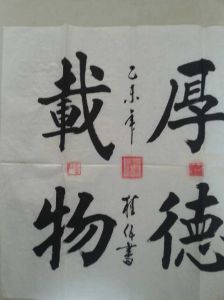 厚德
載物
乙未年
桂
書